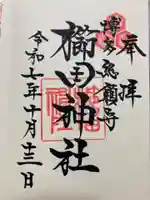 奉拝
博多总鎮守
櫛田神社
令和七年十月十三日